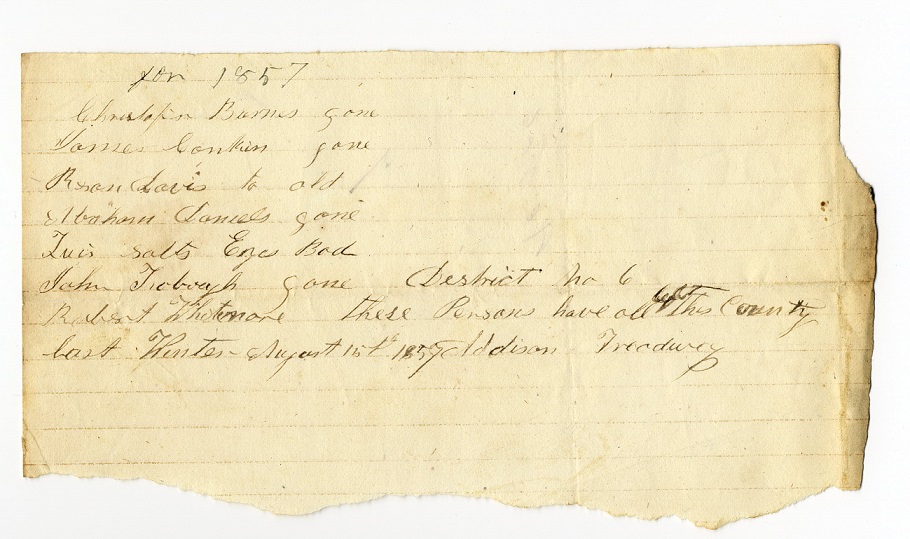 for 1857
Christopher Barnes gone
James Conken gone
Reson Davis to old
Abraham Daniels gone
Luis Salts Eyes Bad
John Trobough gone District no 6
Robert Whitemore these Persons have all left This County
last Winter August 15th 1857 Addison Treadway